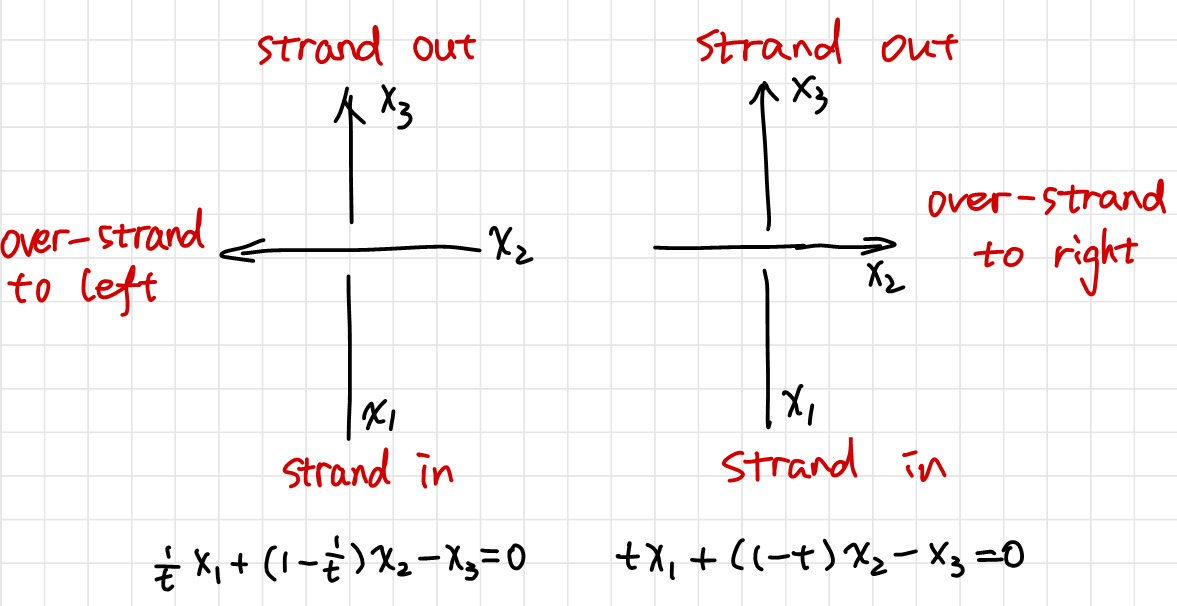 strand out
x₃
over-strand
to left
x₂
x₁
strand in
1/t x₁ + (1 - 1/t) x₂ - x₃ = 0
strand out
x₃
over-strand
to right
x₂
x₁
strand in
t x₁ + (1 - t) x₂ - x₃ = 0